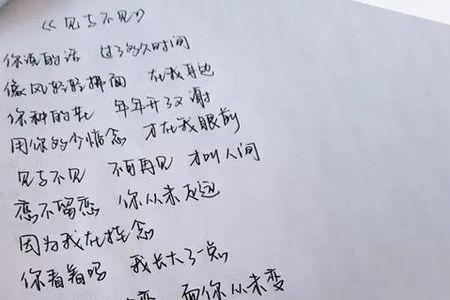 《见与不见》
你说的话 过了多久时间
像风轻轻拂面 在我身边
你种的花 年年开了又谢
用你的少惦念 才在我眼前
见与不见 不再再见 才叫人间
恋不留恋 你从未走远
因为我在挂念
你看看吗 我长大了一点
变 而你从未变